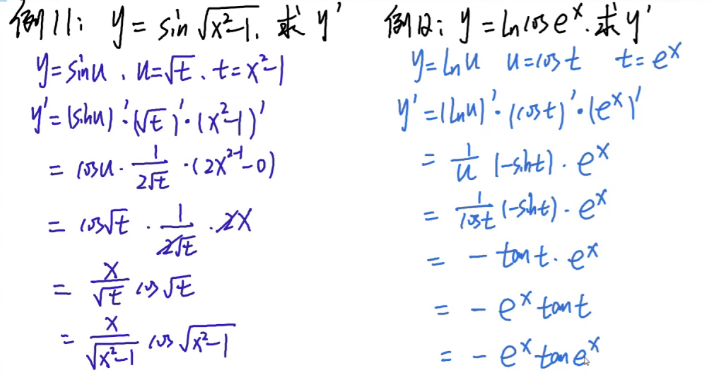 例11: y = sin√(x²-1). 求 y'
y = sinu, u = √t, t = x²-1
y' = (sinu)'·(√t)'·(x²-1)'
= cosu · 1/(2√t) · (2x²⁻¹-0)
= cos√t · 1/(2√t) · 2x
= x/√t cos√t
= x/√(x²-1) cos√(x²-1)
例12: y = lncoseˣ. 求 y'
y = lnu u = cost t = eˣ
y' = (lnu)'·(cost)'·(eˣ)'
= 1/u (-sint)·eˣ
= 1/cost (-sint)·eˣ
= -tant·eˣ
= -eˣtant
= -eˣtaneˣ